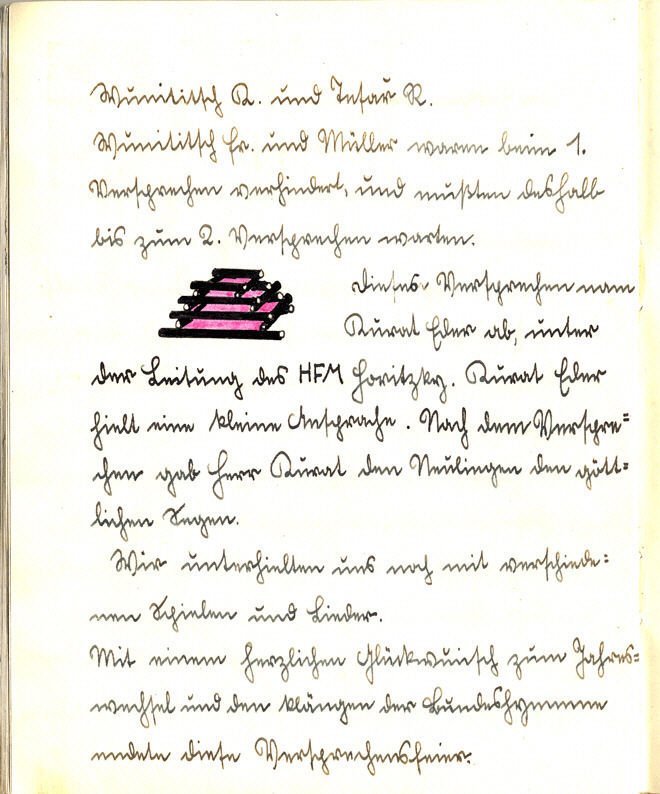 Wunititsch K. und Infar R.
Wunititsch Fr. und Müller waren beim 1.
Versprechen verhindert, und mußten deshalb
bis zum 2. Versprechen warten.
Dieses Versprechen nam
Kurat Eder ab, unter
der Leitung des HFM Horitzky. Kurat Eder
hielt eine kleine Ansprache. Nach dem Verspre=
chen gab Herr Kurat den Neulingen den gött=
lichen Segen.
Wir unterhielten uns noch mit verschiede=
nen Spielen und Lieder.
Mit einem herzlichen Glückwunsch zum Jahres=
wechsel und den klängen der Bundeshymne
endete diese Versprechensfeier.